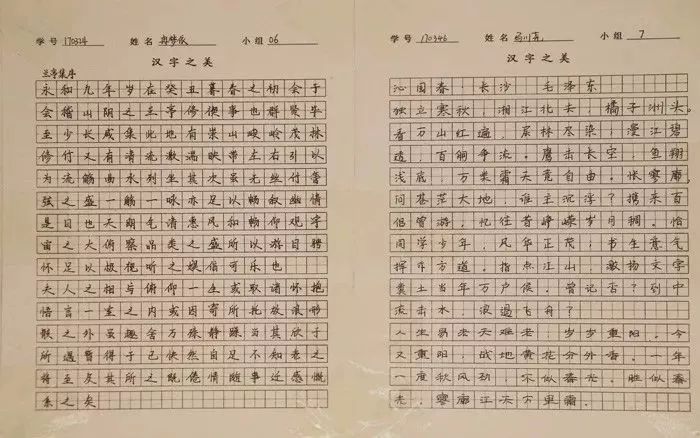 学号 170324 姓名 冉梦依 小组 06
汉字之美
兰亭集序
永和九年岁在癸丑暮春之初会于
会稽山阴之兰亭修禊事也群贤毕
至少长咸集此地有崇山峻岭茂林
修竹又有清流激湍映带左右引以
为流觞曲水列坐其次虽无丝竹管
弦之盛一觞一咏亦足以畅叙幽情
是日也天朗气清惠风和畅仰观宇
宙之大俯察品类之盛所以游目骋
怀足以极视听之娱信可乐也
夫人之相与俯仰一生或取诸怀抱
悟言一室之内或因寄所托放浪形
骸之外虽趣舍万殊静躁当其欣于
所遇暂得于己快然自足不知老之
将至矣其所之既倦情随事迁感慨
系之矣
学号 170346 姓名 小组 7
汉字之美
沁园春，长沙 毛泽东
独立寒秋，湘江北去，橘子洲头。
看万山红遍，层林尽染；漫江碧
透，百舸争流。鹰击长空，鱼翔
浅底，万类霜天竞自由。怅寥廓，
问苍茫大地，谁主沉浮？携来百
侣曾游，忆往昔峥嵘岁月稠。恰
同学少年，风华正茂；书生意气
挥斥方遒。指点江山，激扬文字
粪土当年万户侯。曾记否？到中
流击水，浪遏飞舟？
人生易老天难老，岁岁重阳。今
又重阳，战地黄花分外香。一年
一度秋风劲，不似春光。胜似春
光，寥廓江天万里霜。